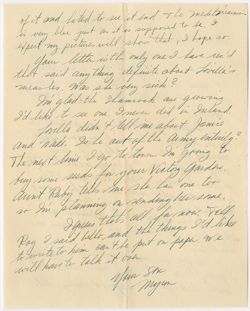 of it and hated to see it end. The Mediterranean
is very blue just as it is supposed to be. I
expect my pictures will show that, I hope so.
Your letter is the only one I have rec'd
that said anything definite about
measles. Was she very sick?
I'm glad the shamrock are growing
I'd like to see one I never did in Ireland.
didn't tell me about Jamie
and Walt. Is he out of the Army entirely?
The next time I go to town I'm going to
buy some seeds for your Victory Garden.
Aunt Ruby tells me she has one too
so I'm planning on sending her some.
I guess that's all for now. Tell
Ray I said hello, and the things I'd like
to write to him can't be put on paper. We
will have to talk it over.
Your Son